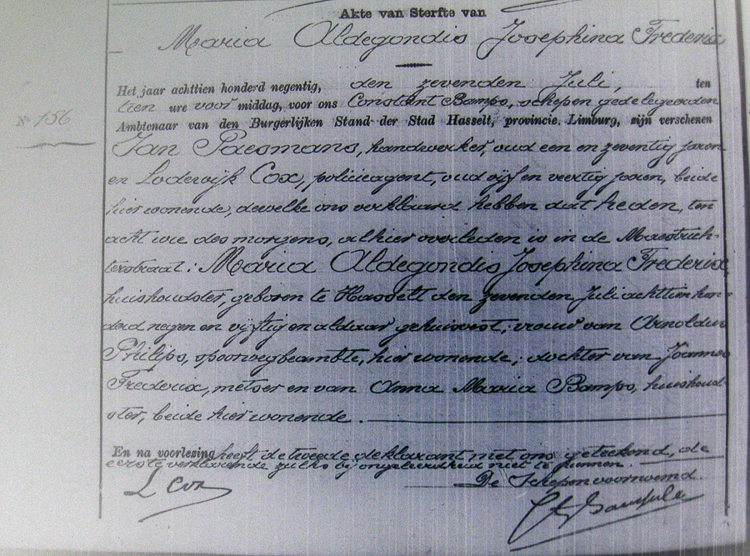 Akte van Sterfte van
Maria Aldegondis Josephina Frederix
Het jaar achttien honderd negentig, den zevenden Juli, ten
tien ure voor middag, voor ons Constant Bamps, schepen gedelegeerden
Nº 156
Ambtenaar van den Burgerlijken Stand der Stad Hasselt, provincie Limburg, zijn verschenen
Jan Paesmans, handwerker, oud een en zeventig jaren
en Lodewijk Cox, policieagent, oud vijf en veertig jaren, beide
hier wonende, dewelke ons verklaard hebben dat heden, ten
acht ure des morgens, alhier overleden is in de Maestrich-
terstraat: Maria Aldegondis Josephina Frederix,
huishoudster, geboren te Hasselt den zevenden Juli achttien hon-
derd negen en vijftig en aldaar gehuisvest, vrouw van Arnoldus
Philips, spoorwegbeambte, hier wonende; dochter van Joannes
Frederix, metser en van Anna Maria Bamps, huishoud-
ster, beide hier wonende.
En na voorlezing heeft de tweede deklarant met ons geteekend, de
eerste verklarende zulks bij ongeleerdheid niet te kunnen.
De Schepen voornoemd.
L Cox